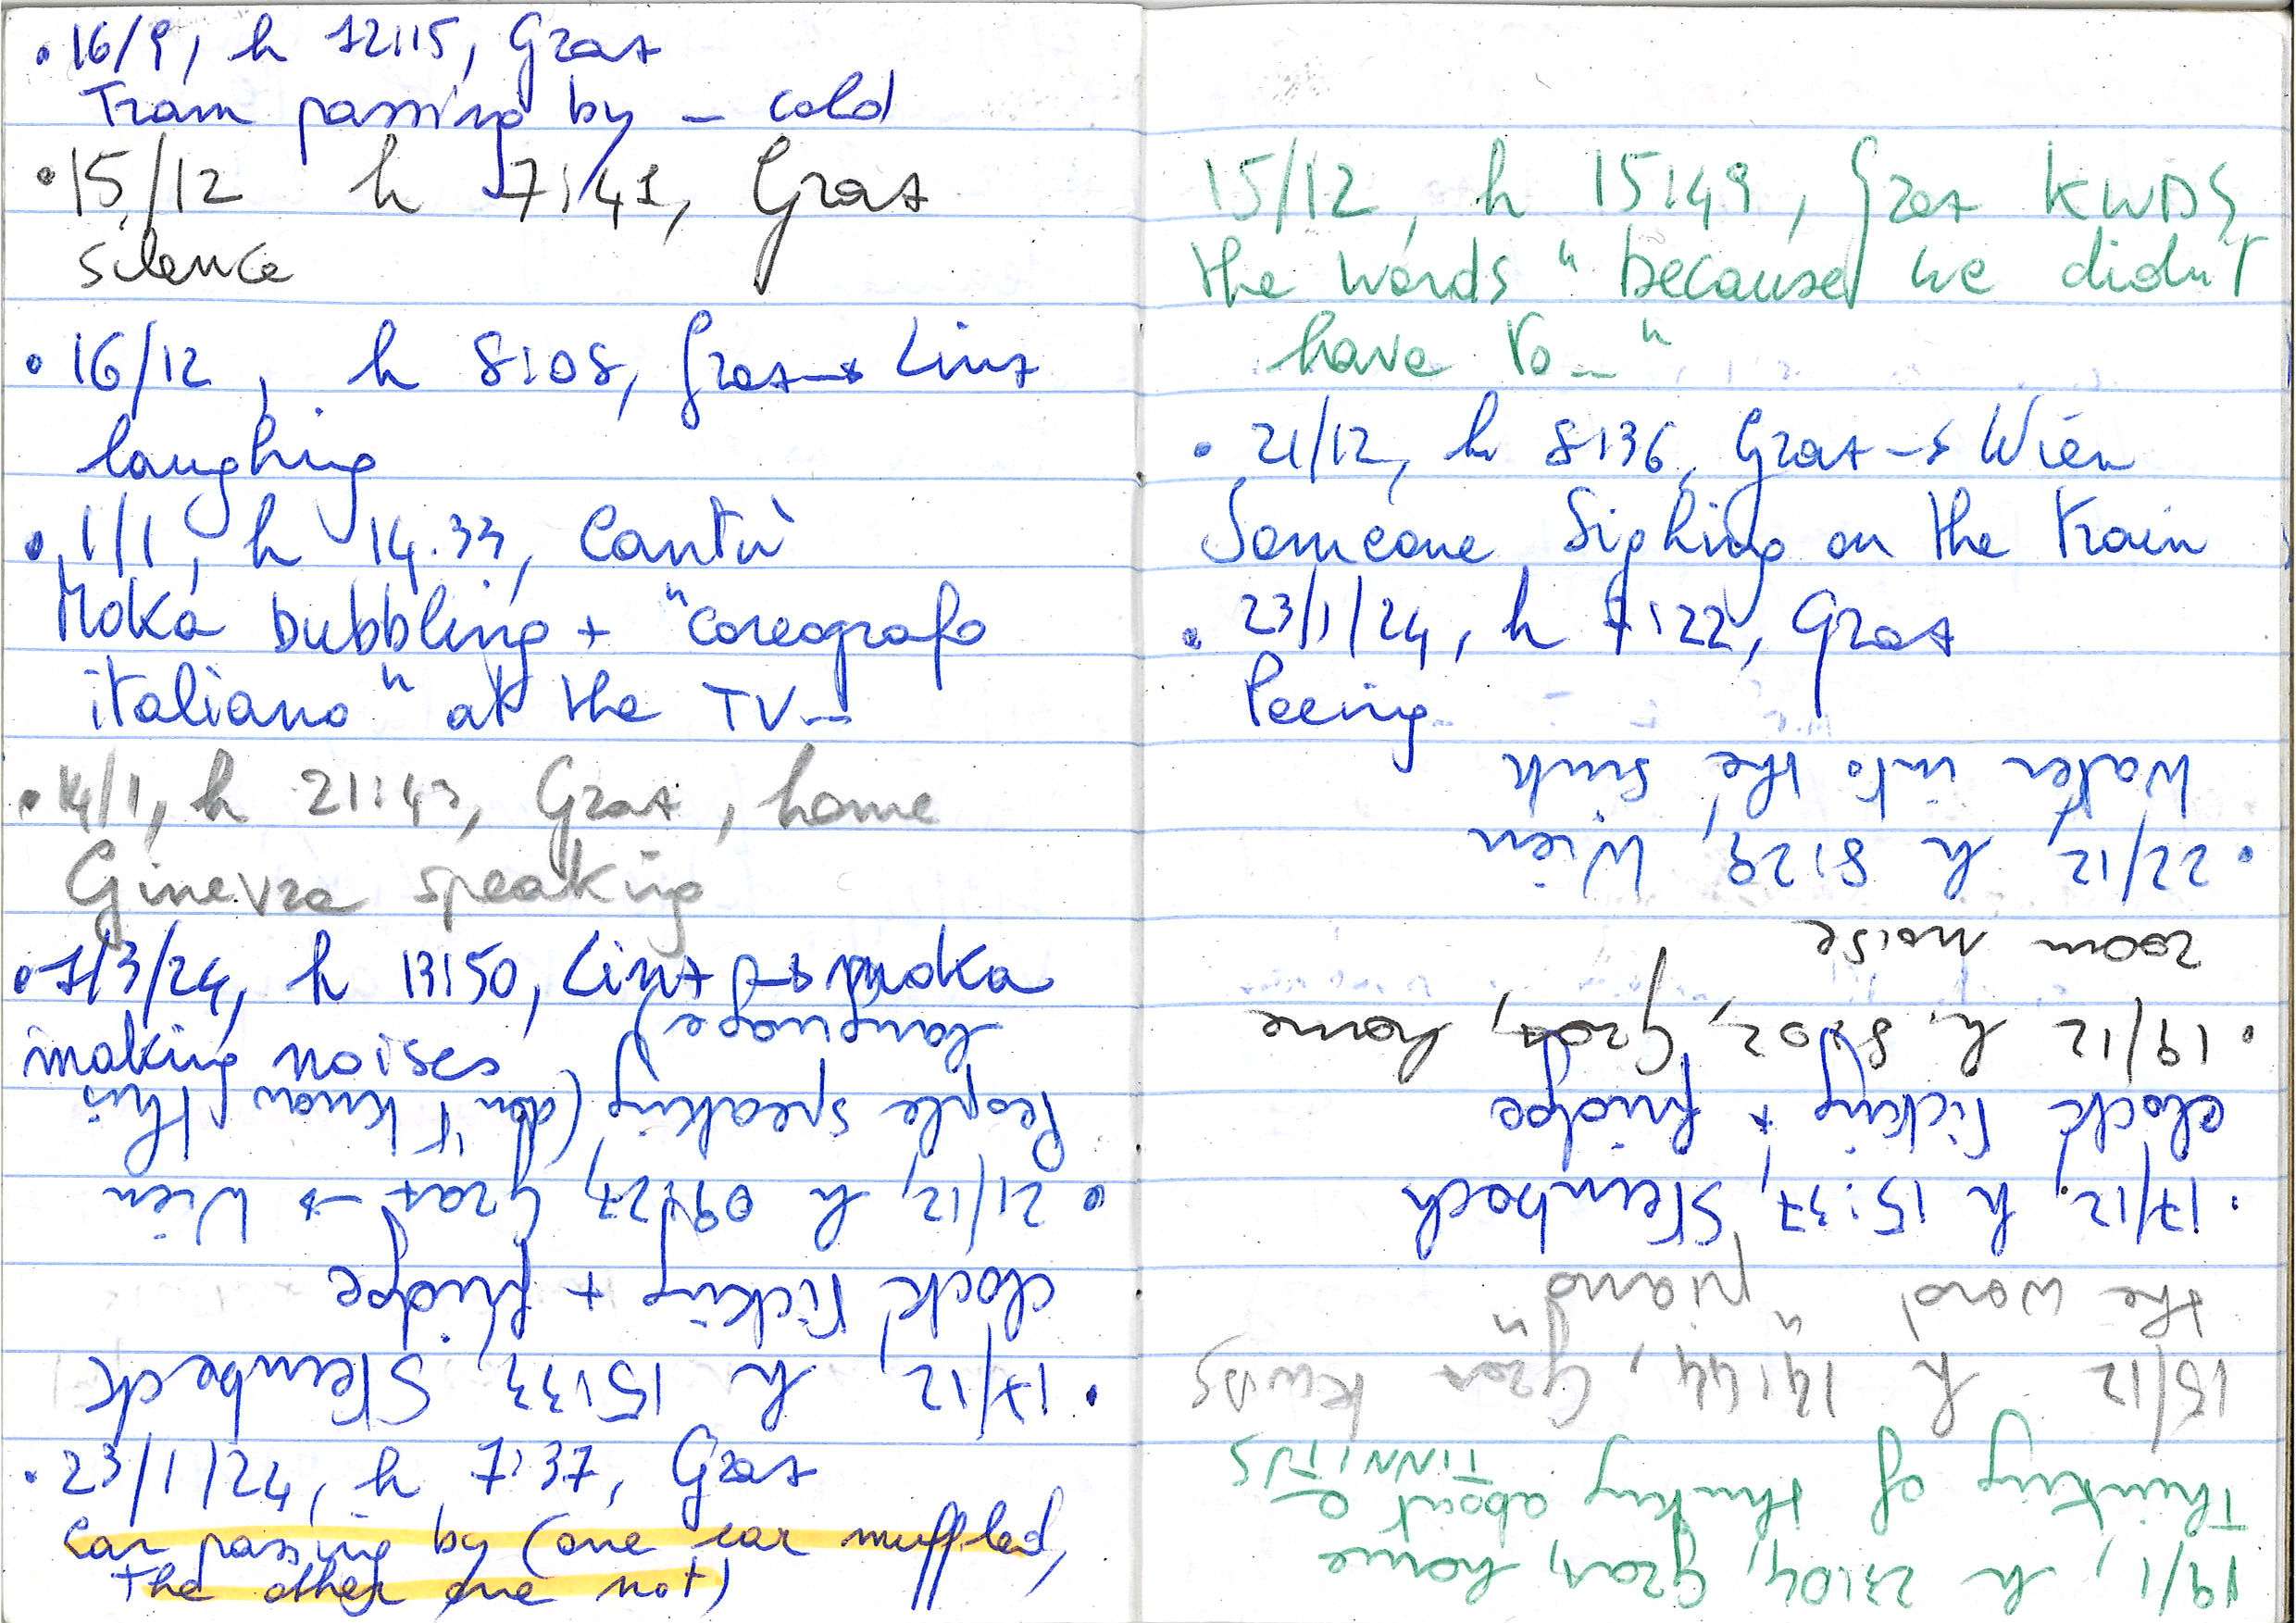 • 16/9, h 12:15, Graz
Tram passing by _ cold
• 15/12 h 7:41, Graz
silence
• 16/12, h 8:08, Graz → Linz
laughing
• 1/1, h 14.33, Cantù
Moka bubbling + "coreografo
italiano" at the TV _
• 14/1, h 21:43, Graz, home
Ginevra speaking
• 7/3/24, h 13:50, Linz → moka
making noises
• 23/1/24, h 7:37, Graz
Car passing by (one ear muffled,
the other one not)
• 17/12, h 15:33, Steinbeck
clock ticking + fridge
• 21/12, h 09:27, Graz → Wien
People speaking (don't know this
language)
15/12, h 15:49, Graz KWDS
the words "because we didn't
have to _"
• 21/12, h 8:36, Graz → Wien
Someone sighing on the train
• 23/1/24, h 7:22, Graz
Peeing
19/1, h 23:04, Graz, home
Thinking of thinking about a
TINNITUS
15/12 h 14:44, Graz KWDS
the word "piano"
• 17/12, h 15:37, Steinbeck
clock ticking + fridge
• 19/12 h 8:02, Graz, home
room noise
• 22/12, h 8:29, Wien
Water into the sink